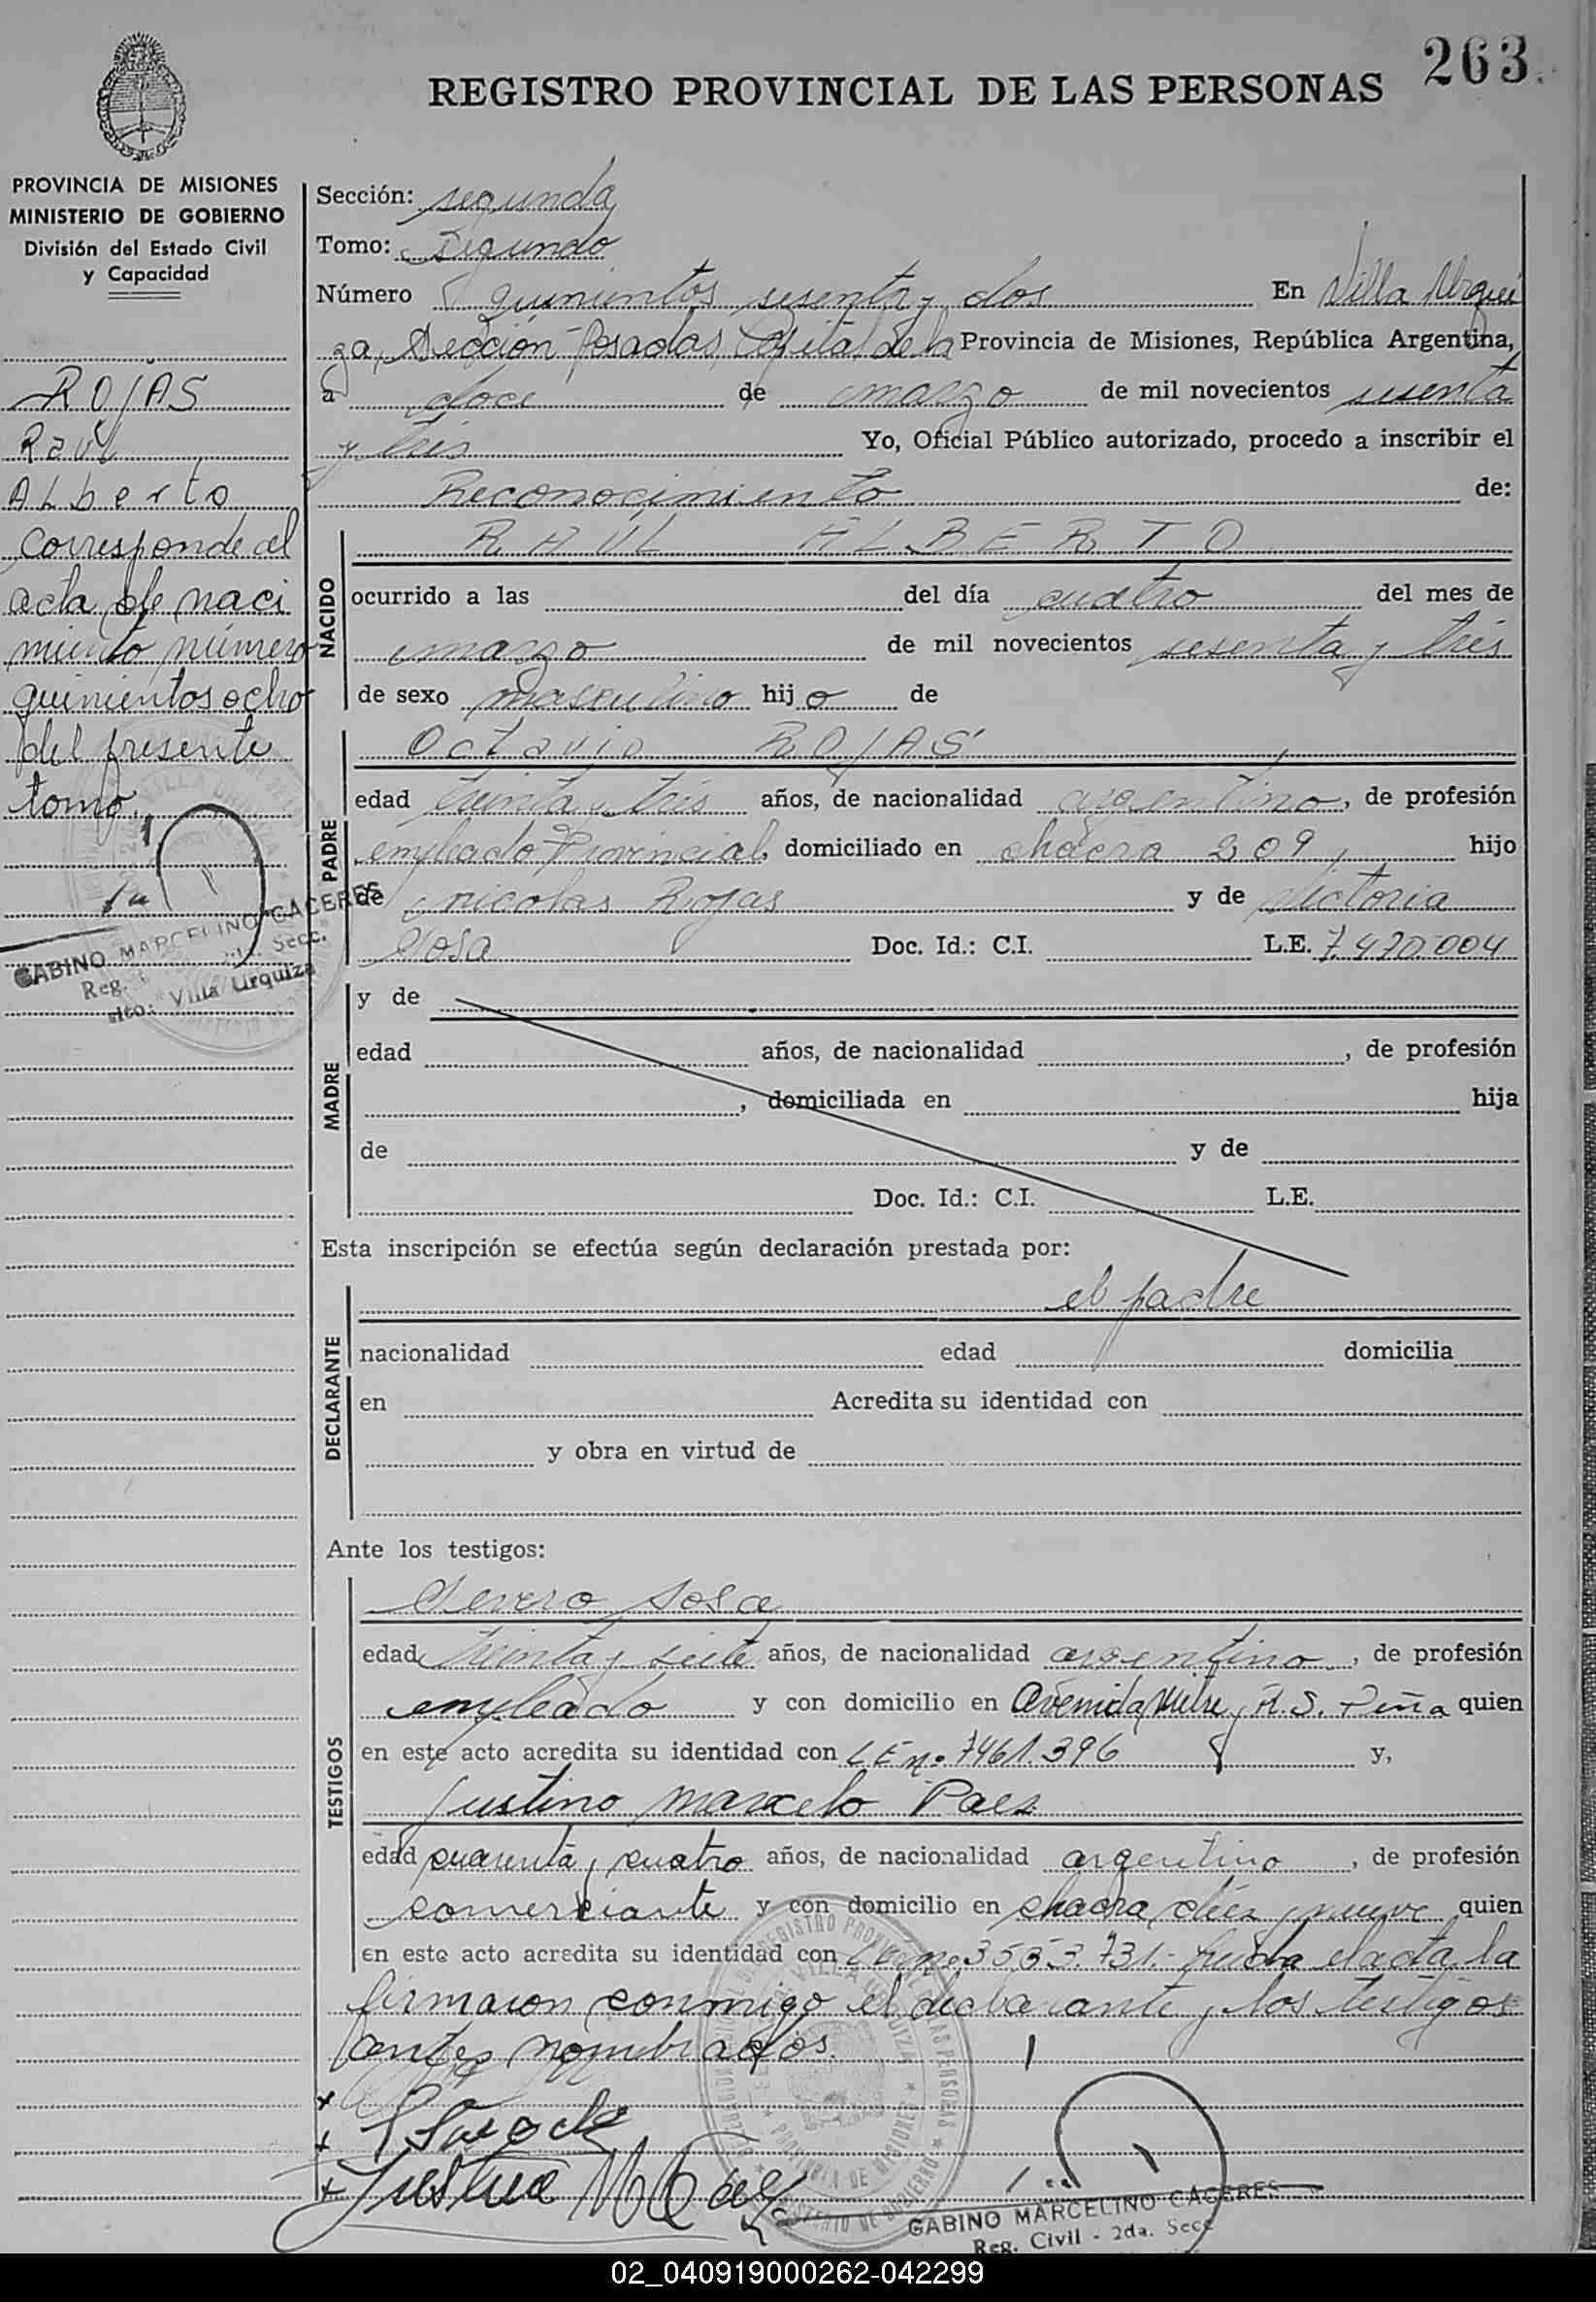 263
REGISTRO PROVINCIAL DE LAS PERSONAS
PROVINCIA DE MISIONES
MINISTERIO DE GOBIERNO
División del Estado Civil
y Capacidad
ROJAS
Raúl
ALberto
Corresponde al
acta de naci
miento número
quinientos ocho
del presente
tomo.
GABINO MARCELINO CACERES
Reg. Secc.
Villa Urquiza
Sección: segunda
Tomo: Segundo
Número quinientos sesenta y dos En Villa Urqui
za, Sección Posadas, Capital de la Provincia de Misiones, República Argentina,
a doce de marzo de mil novecientos sesenta
y tres Yo, Oficial Público autorizado, procedo a inscribir el
Reconocimiento de:
NACIDO
RAÚL ALBERTO
ocurrido a las del día cuatro del mes de
marzo de mil novecientos sesenta y tres
de sexo masculino hijo de
PADRE
Octavio ROJAS
edad treinta y tres años, de nacionalidad argentino, de profesión
empleado Provincial, domiciliado en chacra 209, hijo
de nicolas Rojas y de Victoria
Sosa Doc. Id.: C.I. L.E. 7.420.004
MADRE
y de
edad años, de nacionalidad , de profesión
, domiciliada en hija
de y de
Doc. Id.: C.I. L.E.
Esta inscripción se efectúa según declaración prestada por:
DECLARANTE
el padre
nacionalidad edad domicilia
en Acredita su identidad con
y obra en virtud de
Ante los testigos:
TESTIGOS
Severo Sosa
edad treinta y siete años, de nacionalidad argentino, de profesión
empleado y con domicilio en Avenida Mitre y R. S. Peña quien
en este acto acredita su identidad con LE nº 7461.396 y,
Justino Marcelo Paez
edad cuarenta y cuatro años, de nacionalidad argentino, de profesión
comerciante y con domicilio en chacra diez y nueve quien
en este acto acredita su identidad con LE nº 3553.731.- Leída el acta, la
firmaron conmigo el declarante y los testigos
antes nombrados.
GABINO MARCELINO CACERES
Reg. Civil - 2da. Secc
02_040919000262-042299